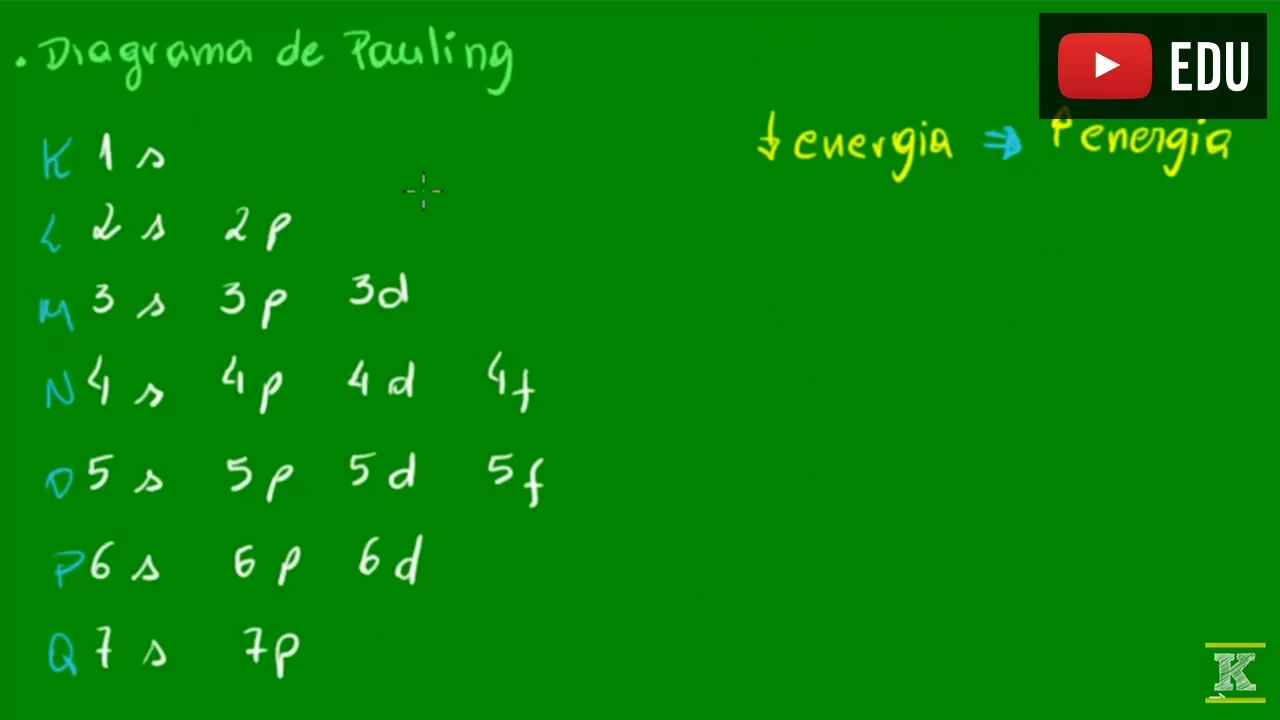 . Diagrama de Pauling
EDU
↓ energia ⇒ ↑ energia
K 1 s
L 2 s 2 p
M 3 s 3 p 3d
N 4 s 4 p 4 d 4 f
O 5 s 5 p 5 d 5 f
P 6 s 6 p 6 d
Q 7 s 7p
K